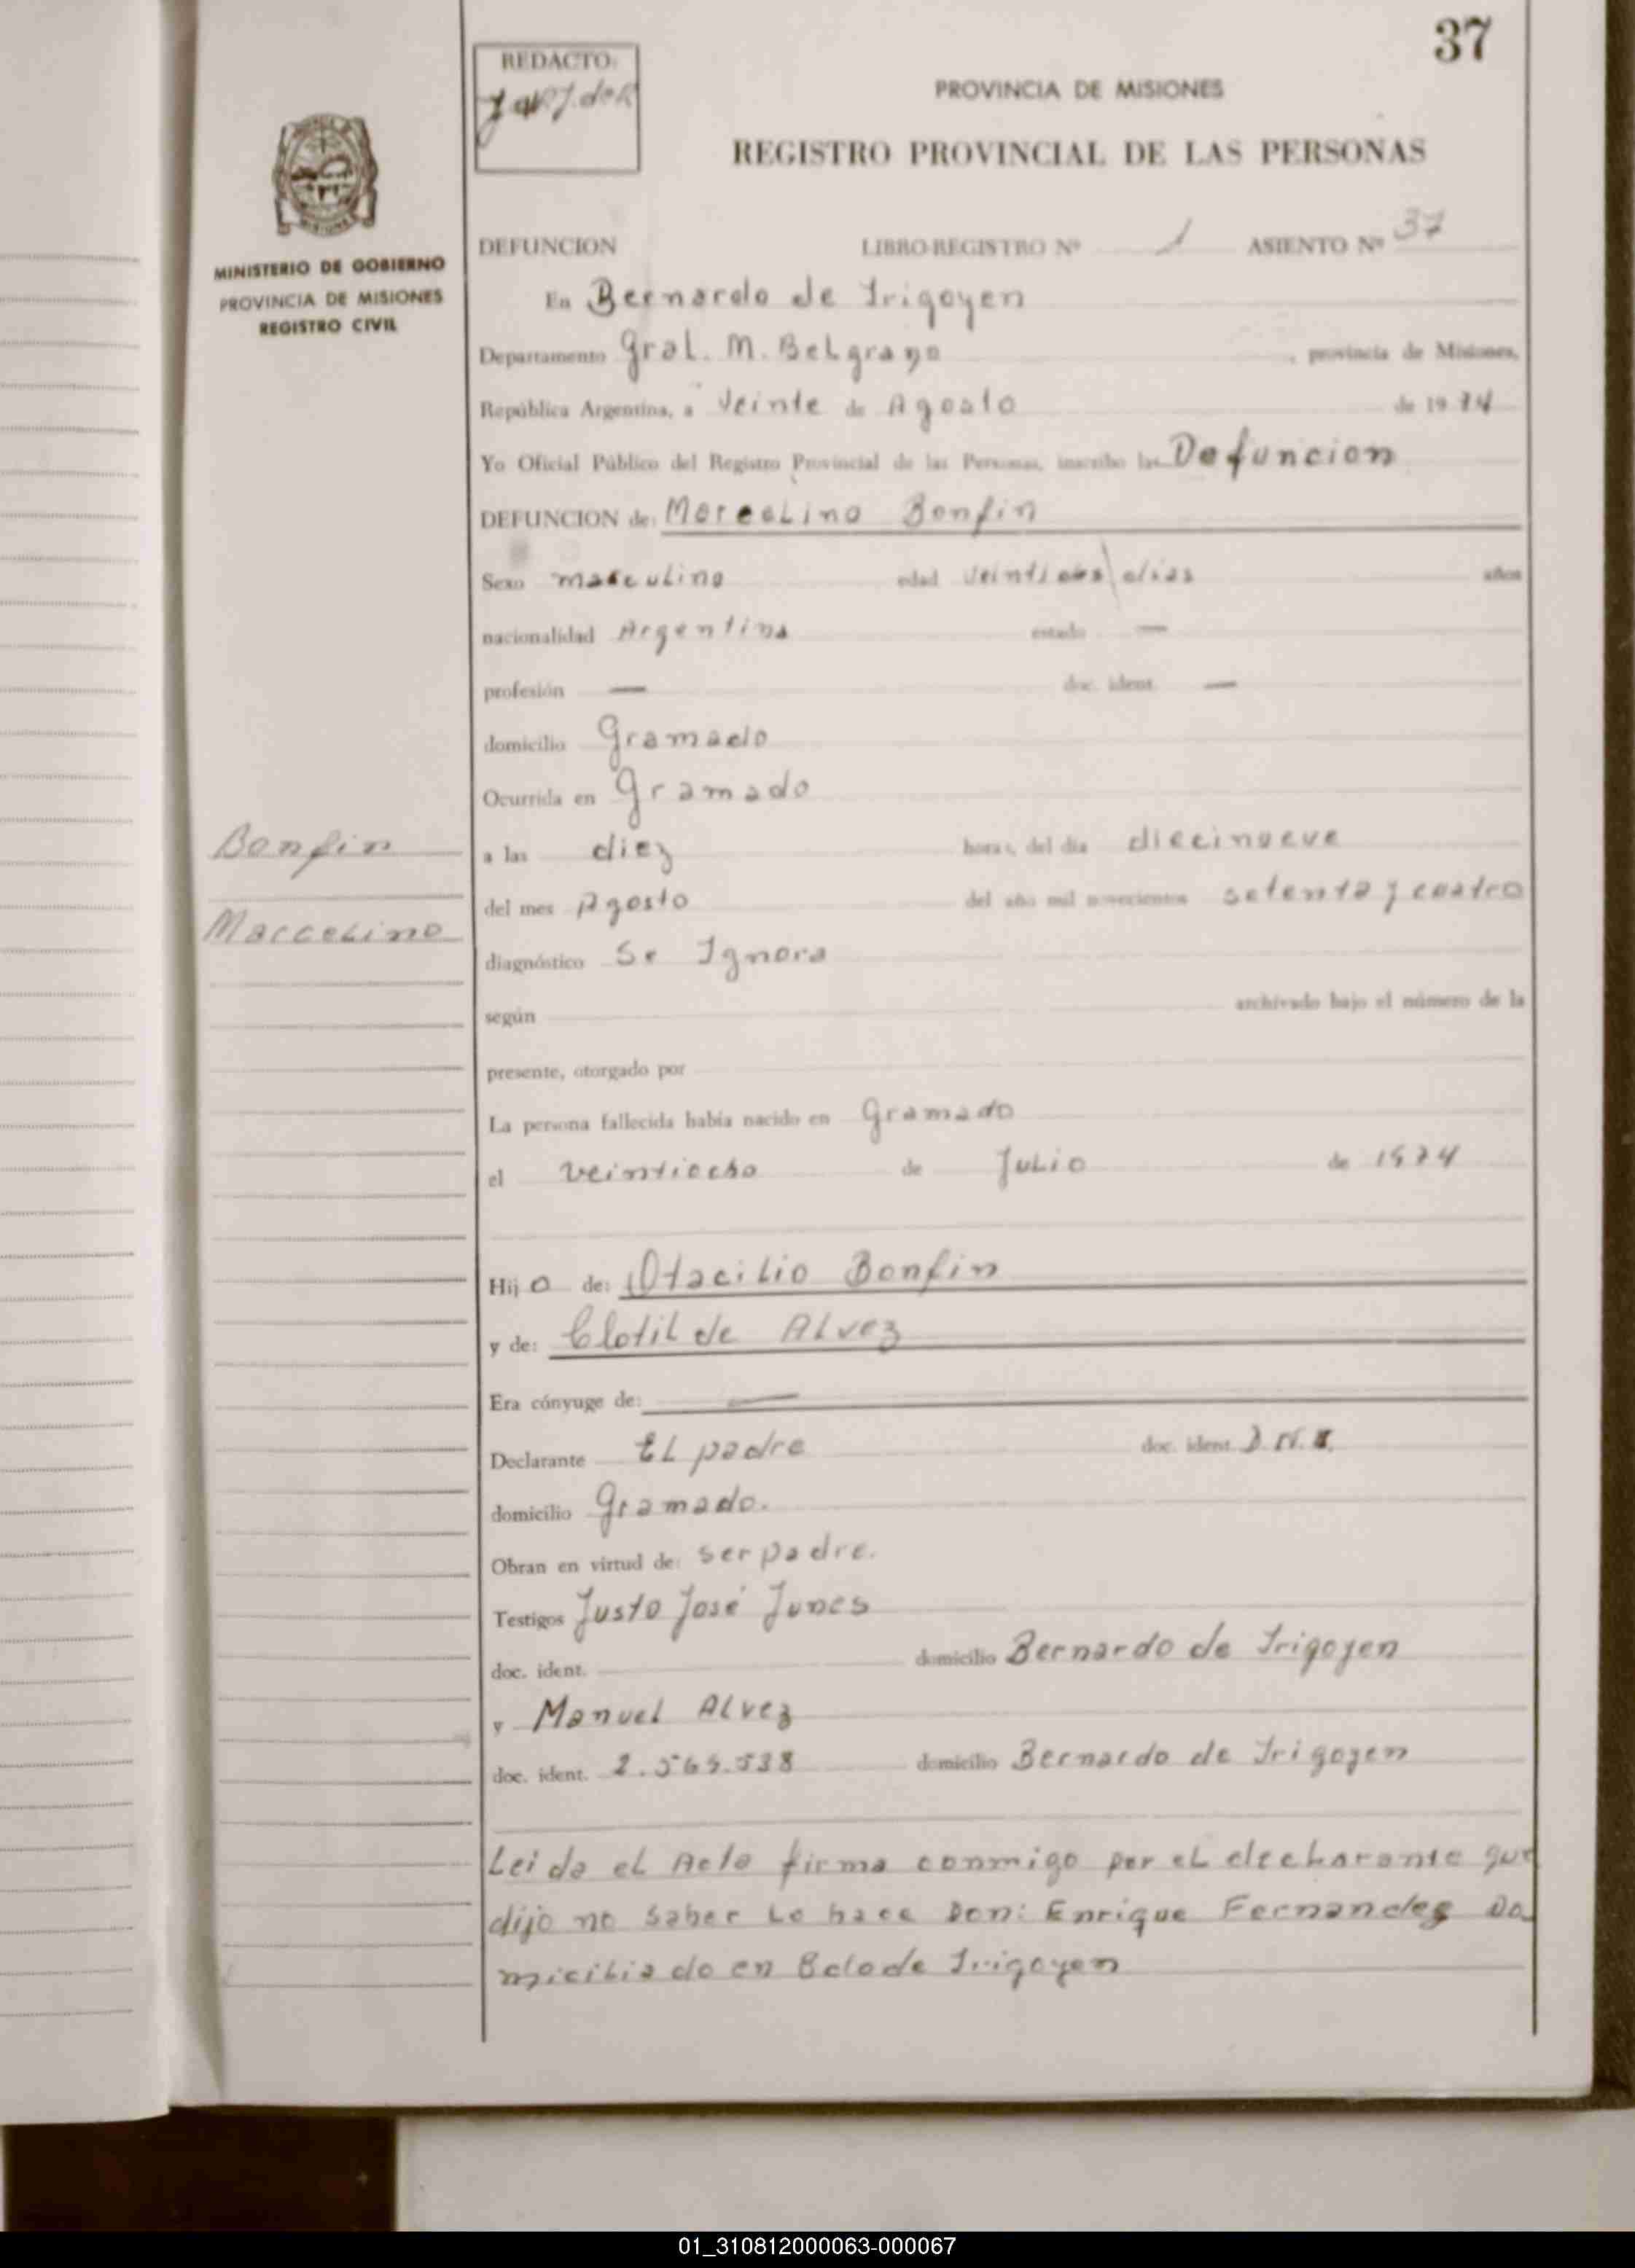 37
REDACTO:
PROVINCIA DE MISIONES
REGISTRO PROVINCIAL DE LAS PERSONAS
MINISTERIO DE GOBIERNO
PROVINCIA DE MISIONES
REGISTRO CIVIL
DEFUNCION LIBRO-REGISTRO Nº 1 ASIENTO Nº 37
En Bernardo de Irigoyen
Departamento Gral. M. Belgrano , provincia de Misiones,
República Argentina, a Veinte de Agosto de 1974
Yo Oficial Público del Registro Provincial de las Personas, inscribo la Defuncion
DEFUNCION de: Marcelino Bonfin
Sexo masculino edad veintidos dias años
nacionalidad Argentina estado —
profesión — doc. ident. —
domicilio Gramado
Ocurrida en Gramado
Bonfin
a las diez horas, del día diecinueve
Marcelino
del mes Agosto del año mil novecientos setenta y cuatro
diagnóstico Se Ignora
según archivado bajo el número de la
presente, otorgado por
La persona fallecida había nacido en Gramado
el veintiocho de Julio de 1974
Hijo de: Otacilio Bonfin
y de: Clotilde Alvez
Era cónyuge de: —
Declarante El padre doc. ident.
domicilio Gramado.
Obran en virtud de: ser padre.
Testigos Justo José Junes
doc. ident. domicilio Bernardo de Irigoyen
y Manuel Alvez
doc. ident. 2.565.538 domicilio Bernardo de Irigoyen
Leida el Acta firma conmigo por el declarante que
dijo no saber Lo hace Don: Enrique Fernandes Do
miciliado en Bdo de Irigoyen
01_310812000063-000067